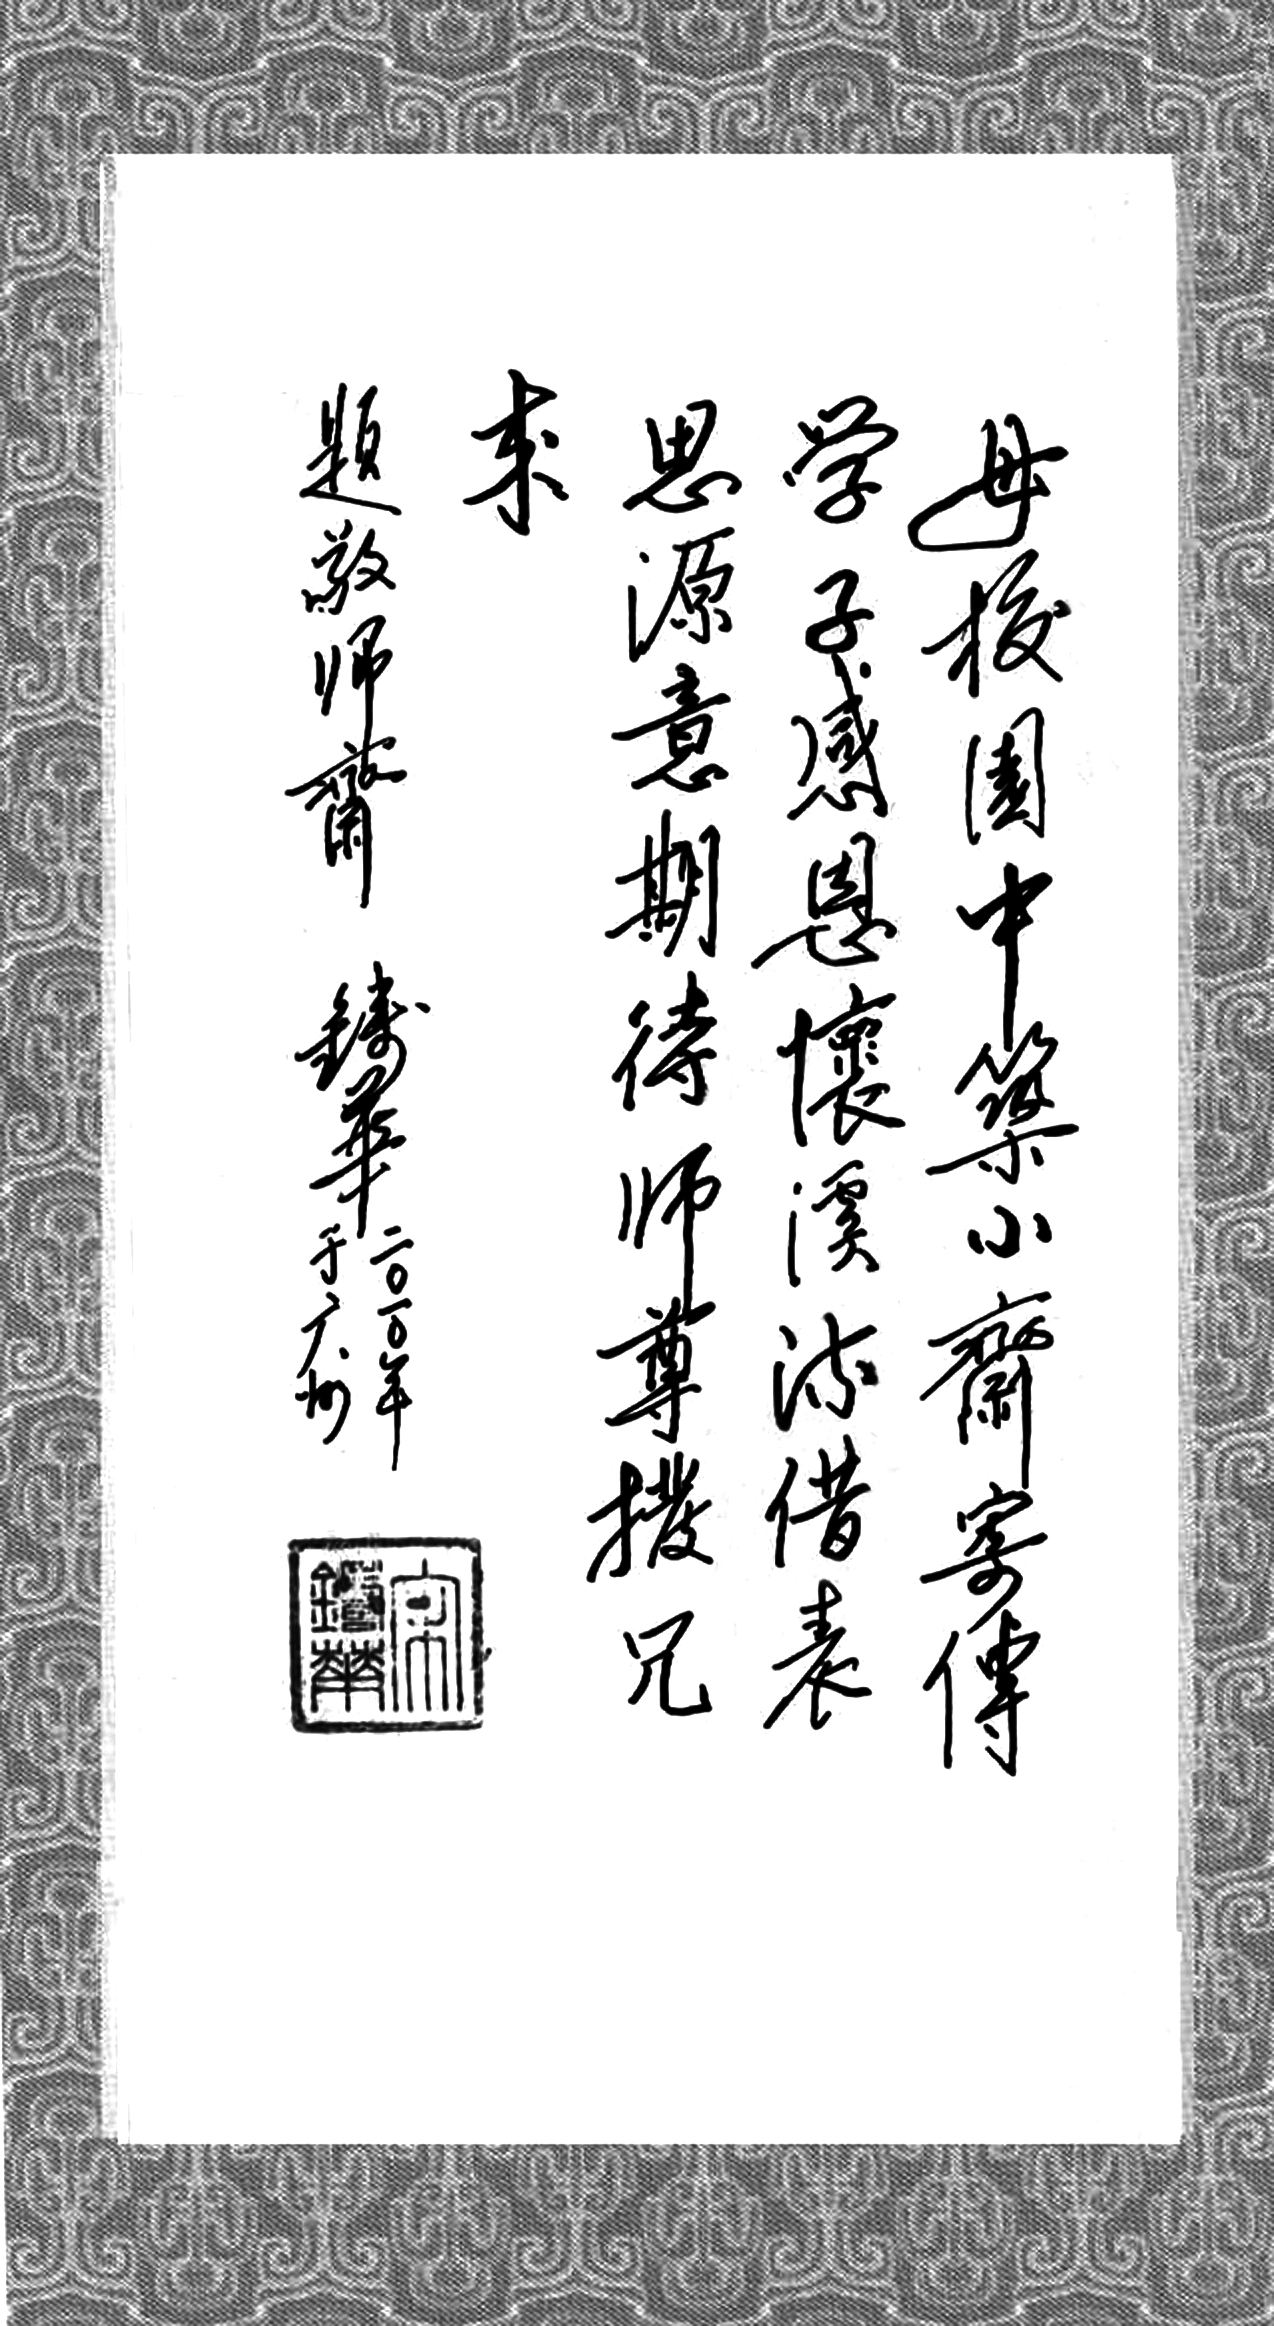 母校園中築小齋寄傳
学子感恩懷溪流借表
思源意期待师尊撥冗
来
題敬师齋 鑄華
二〇一〇年
于广州
宋
鑄華